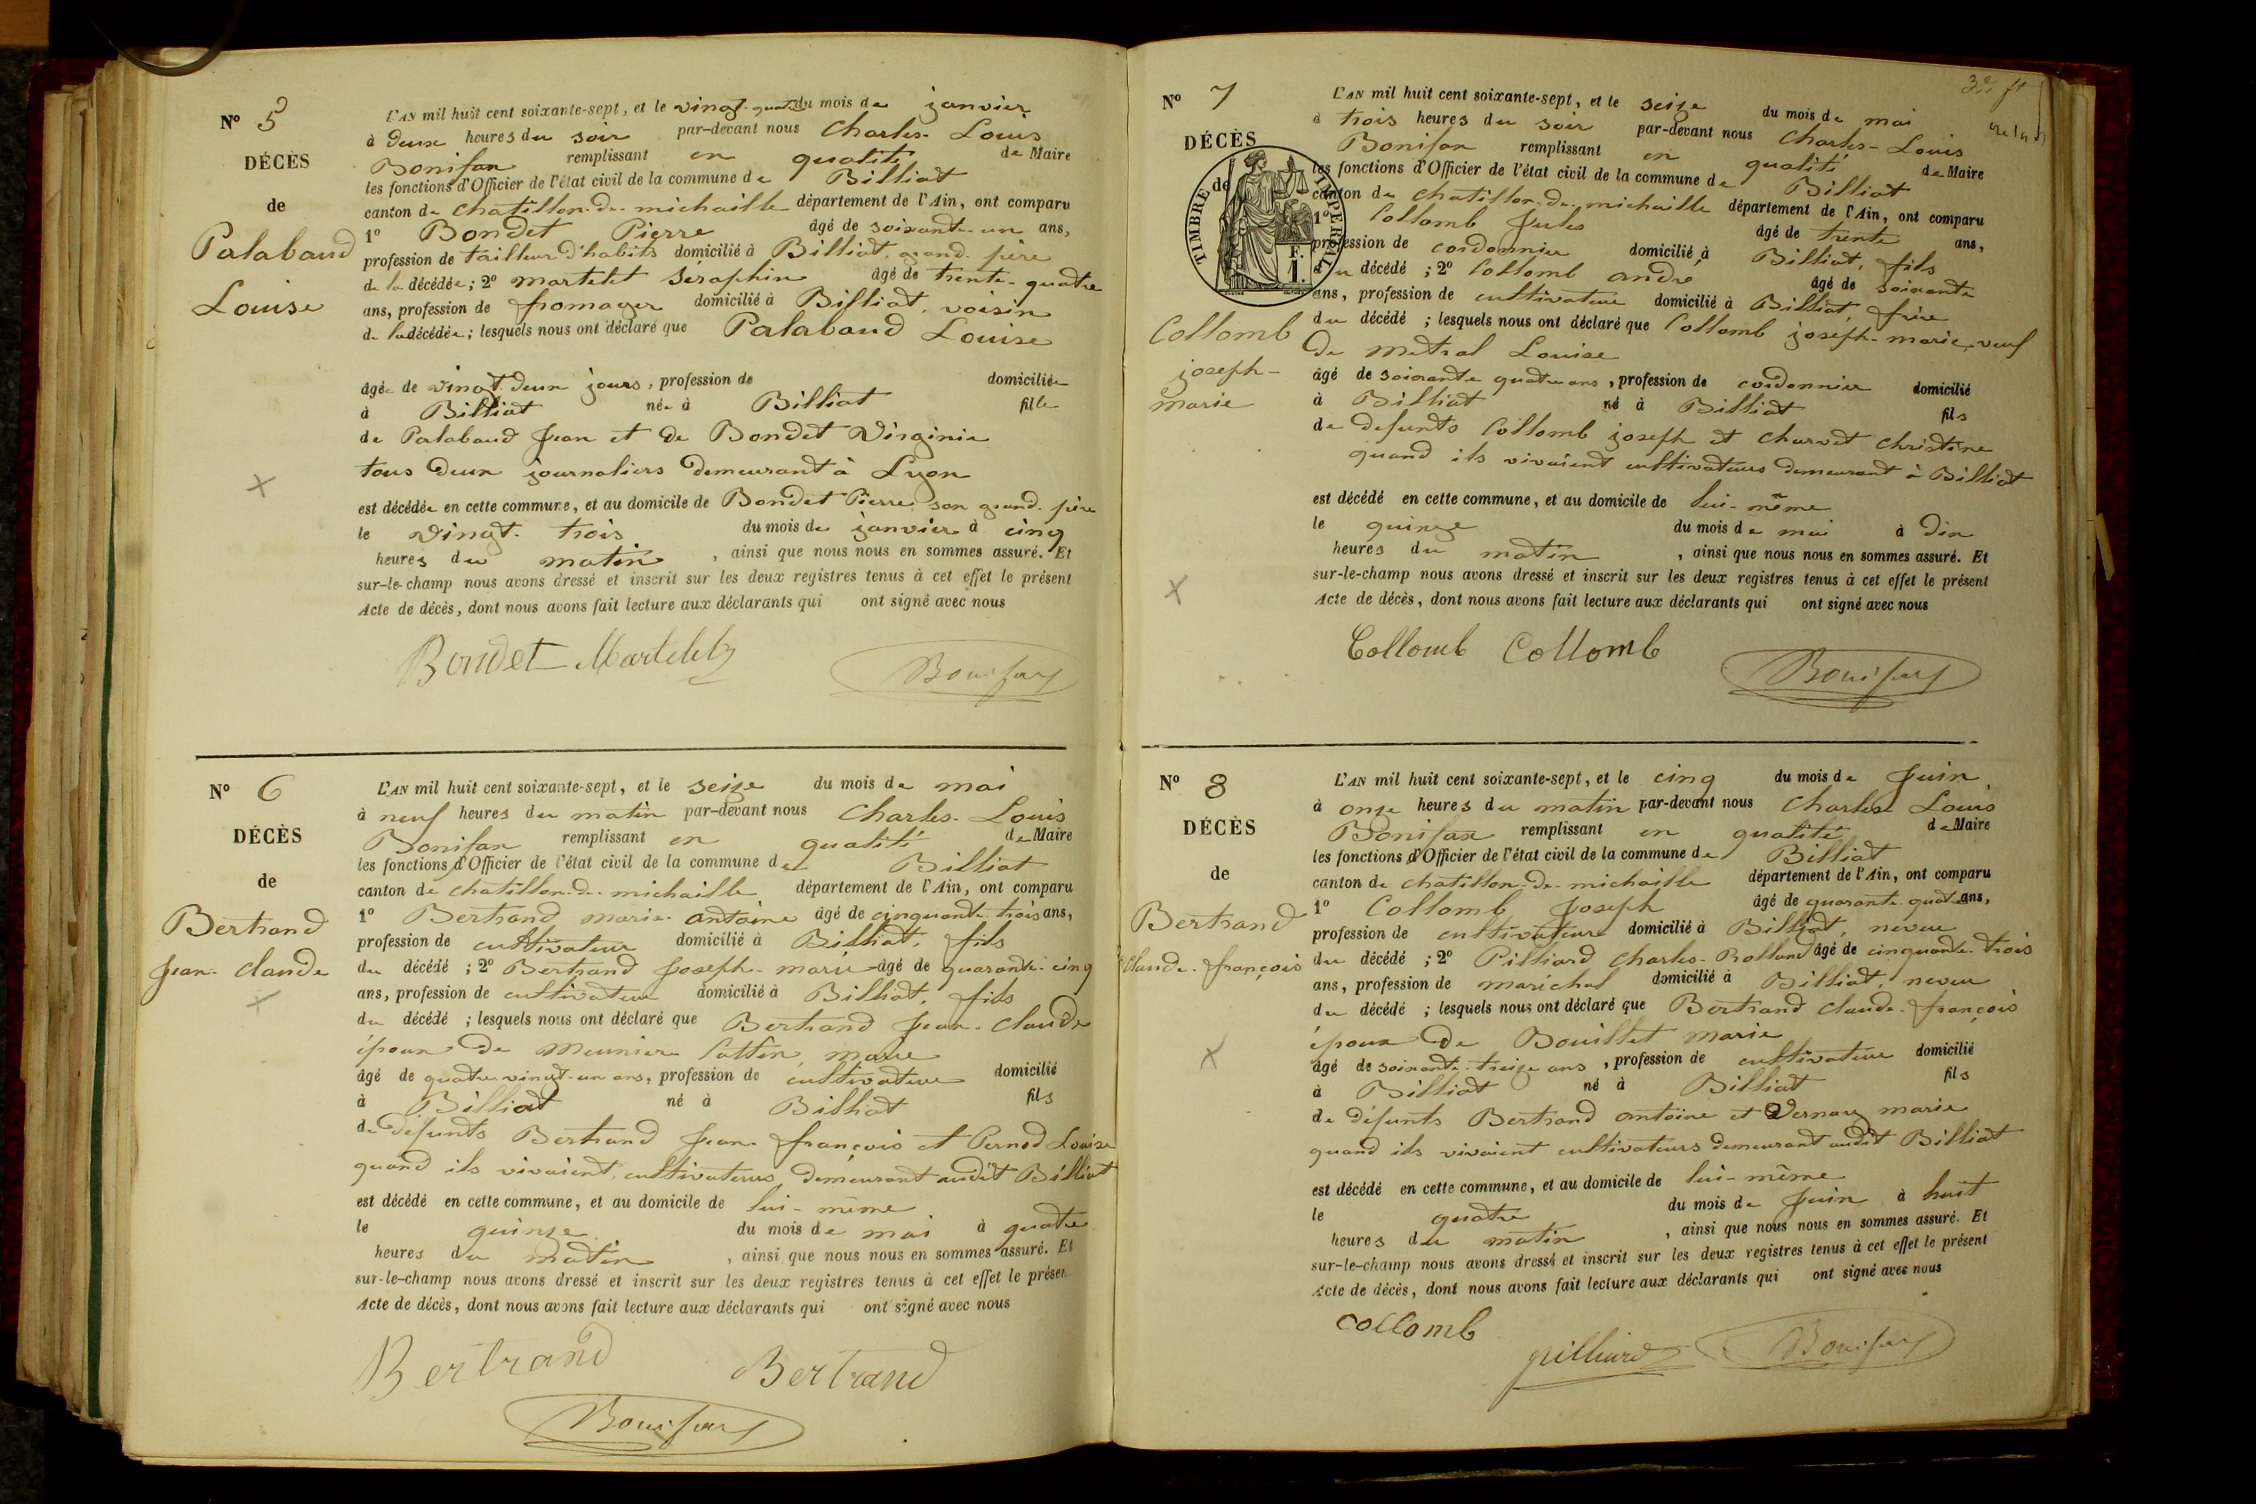 N° 5
DÉCÈS
de
Palabaud
Louise
L'AN mil huit cent soixante-sept, et le vingt-quatre du mois de janvier
à deux heures du soir par-devant nous Charles-Louis
Bonifax remplissant en qualité de Maire
les fonctions d'Officier de l'état civil de la commune de Billiat
canton de Chatillon-de-michaille département de l'Ain, ont comparu
1° Bondet Pierre âgé de soixante-un ans,
profession de tailleur d'habits domicilié à Billiat, grand-père
de la décédée ; 2° martelet Séraphin âgé de trente-quatre
ans, profession de fromager domicilié à Billiat, voisin
de la décédée ; lesquels nous ont déclaré que Palabaud Louise
âgée de vingt deux jours, profession de domiciliée
à Billiat née à Billiat fille
de Palabaud Jean et de Bondet Virginie
tous deux journaliers demeurant à Lyon
est décédée en cette commune, et au domicile de Bondet Pierre son grand-père
le vingt-trois du mois de janvier à cinq
heures du matin, ainsi que nous nous en sommes assuré. Et
sur-le-champ nous avons dressé et inscrit sur les deux registres tenus à cet effet le présent
Acte de décès, dont nous avons fait lecture aux déclarants qui ont signé avec nous
Bondet Martelet Bonifax
N° 6
DÉCÈS
de
Bertrand
Jean-Claude
L'AN mil huit cent soixante-sept, et le seize du mois de mai
à neuf heures du matin par-devant nous Charles-Louis
Bonifax remplissant en qualité de Maire
les fonctions d'Officier de l'état civil de la commune de Billiat
canton de Chatillon-de-michaille département de l'Ain, ont comparu
1° Bertrand marie-antoine âgé de cinquante-trois ans,
profession de cultivateur domicilié à Billiat, fils
du décédé ; 2° Bertrand Joseph-marie âgé de quarante-cinq
ans, profession de cultivateur domicilié à Billiat, fils
du décédé ; lesquels nous ont déclaré que Bertrand Jean-Claude
époux de Meunier marie
âgé de quatre-vingt-un ans, profession de cultivateur domicilié
à Billiat né à Billiat fils
de défunts Bertrand Jean-françois et Pernod Louise
quand ils vivaient, cultivateurs demeurant audit Billiat
est décédé en cette commune, et au domicile de lui-même
le quinze du mois de mai à quatre
heures du matin, ainsi que nous nous en sommes assuré. Et
sur-le-champ nous avons dressé et inscrit sur les deux registres tenus à cet effet le présen
Acte de décès, dont nous avons fait lecture aux déclarants qui ont signé avec nous
Bertrand Bertrand
Bonifax
N° 7
DÉCÈS
de
TIMBRE IMPERIAL
F. 1.
Collomb
joseph-
marie
L'AN mil huit cent soixante-sept, et le seize du mois de mai
à trois heures du soir par-devant nous Charles-Louis
Bonifax remplissant en qualité de Maire
les fonctions d'Officier de l'état civil de la commune de Billiat
canton de Chatillon-de-michaille département de l'Ain, ont comparu
1° Collomb Jules âgé de trente ans,
profession de cordonnier domicilié à Billiat, fils
du décédé ; 2° Collomb andré âgé de soixante
ans, profession de cultivateur domicilié à Billiat, frère
du décédé ; lesquels nous ont déclaré que Collomb joseph-marie, veuf
de metral Louise
âgé de soixante quatre ans, profession de cordonnier domicilié
à Billiat né à Billiat fils
de défunts Collomb joseph et Charvet Christine
quand ils vivaient cultivateurs demeurant à Billiat
est décédé en cette commune, et au domicile de lui-même
le quinze du mois de mai à dix
heures du matin, ainsi que nous nous en sommes assuré. Et
sur-le-champ nous avons dressé et inscrit sur les deux registres tenus à cet effet le présent
Acte de décès, dont nous avons fait lecture aux déclarants qui ont signé avec nous
Collomb Collomb Bonifax
N° 8
DÉCÈS
de
Bertrand
Claude-françois
L'AN mil huit cent soixante-sept, et le cinq du mois de Juin
à onze heures du matin par-devant nous Charles Louis
Bonifax remplissant en qualité de Maire
les fonctions d'Officier de l'état civil de la commune de Billiat
canton de Chatillon-de-michaille département de l'Ain, ont comparu
1° Collomb Joseph âgé de quarante-quatre ans,
profession de cultivateur domicilié à Billiat, neveu
du décédé ; 2° Pilliard Charles-Rolland âgé de cinquante-trois
ans, profession de maréchal domicilié à Billiat, neveu
du décédé ; lesquels nous ont déclaré que Bertrand Claude-françois
époux de Bouillet marie
âgé de soixante-treize ans, profession de cultivateur domicilié
à Billiat né à Billiat fils
de défunts Bertrand antoine et marie
quand ils vivaient cultivateurs demeurant audit Billiat
est décédé en cette commune, et au domicile de lui-même
le quatre du mois de Juin à huit
heures du matin, ainsi que nous nous en sommes assuré. Et
sur-le-champ nous avons dressé et inscrit sur les deux registres tenus à cet effet le présent
Acte de décès, dont nous avons fait lecture aux déclarants qui ont signé avec nous
collomb pilliard Bonifax